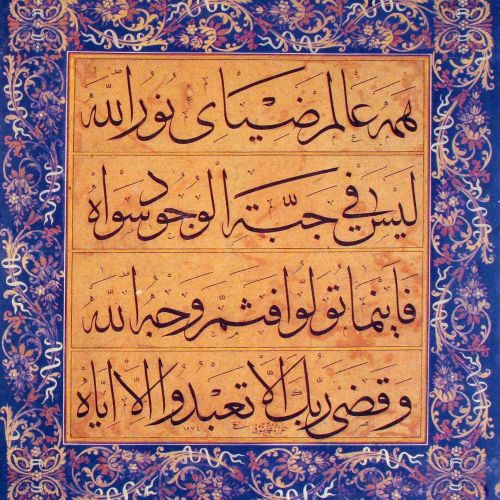 همه عالم ضیای نور الله
لیس فی جبة الوجود سواه
فاینما تولوا فثم وجه الله
و قضی ربك الا تعبدوا الا ایاه
۱۲۷٤